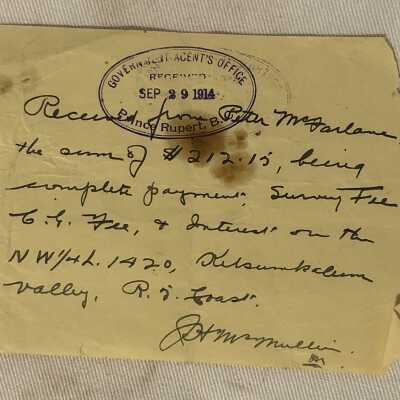 GOVERNMENT AGENT'S OFFICE
RECEIVED
SEP 29 1914
Prince Rupert, B.C.
Received from Peter McFarlane
the sum of $212.15, being
complete payment, Survey Fee
C.G. Fee, & Interest on the
NW 1/4 L. 1420, Kitsumkalum
Valley, R. 5 Coast.
J H McMullin